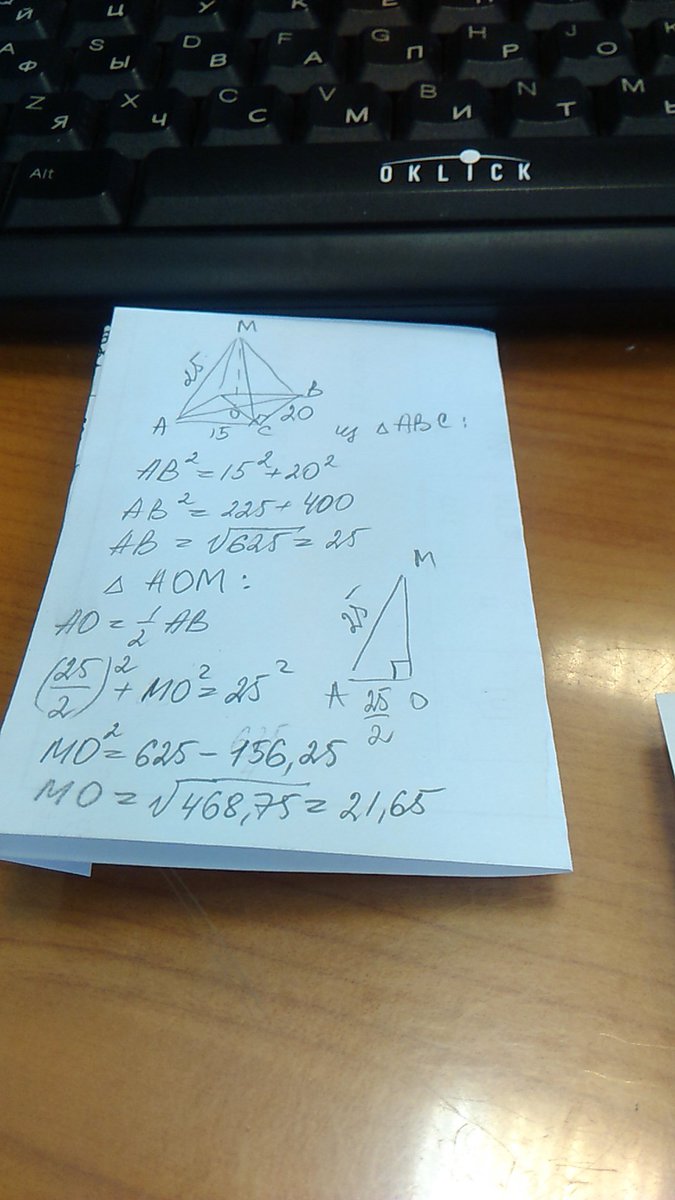 Й Ц У К Е Н
A Ф S Ы D В F А G П H Р J О K
Z Я X Ч C С V М B И N Т M Ь
Alt OKLICK
M
25
A O B
15 C 20
из △ABC:
AB² = 15² + 20²
AB² = 225 + 400
AB = √625 = 25
△ AOM:
AO = 1/2 AB
(25/2)² + MO² = 25²
MO² = 625 - 156,25
MO = √468,75 = 21,65
M
25
A 25/2 O